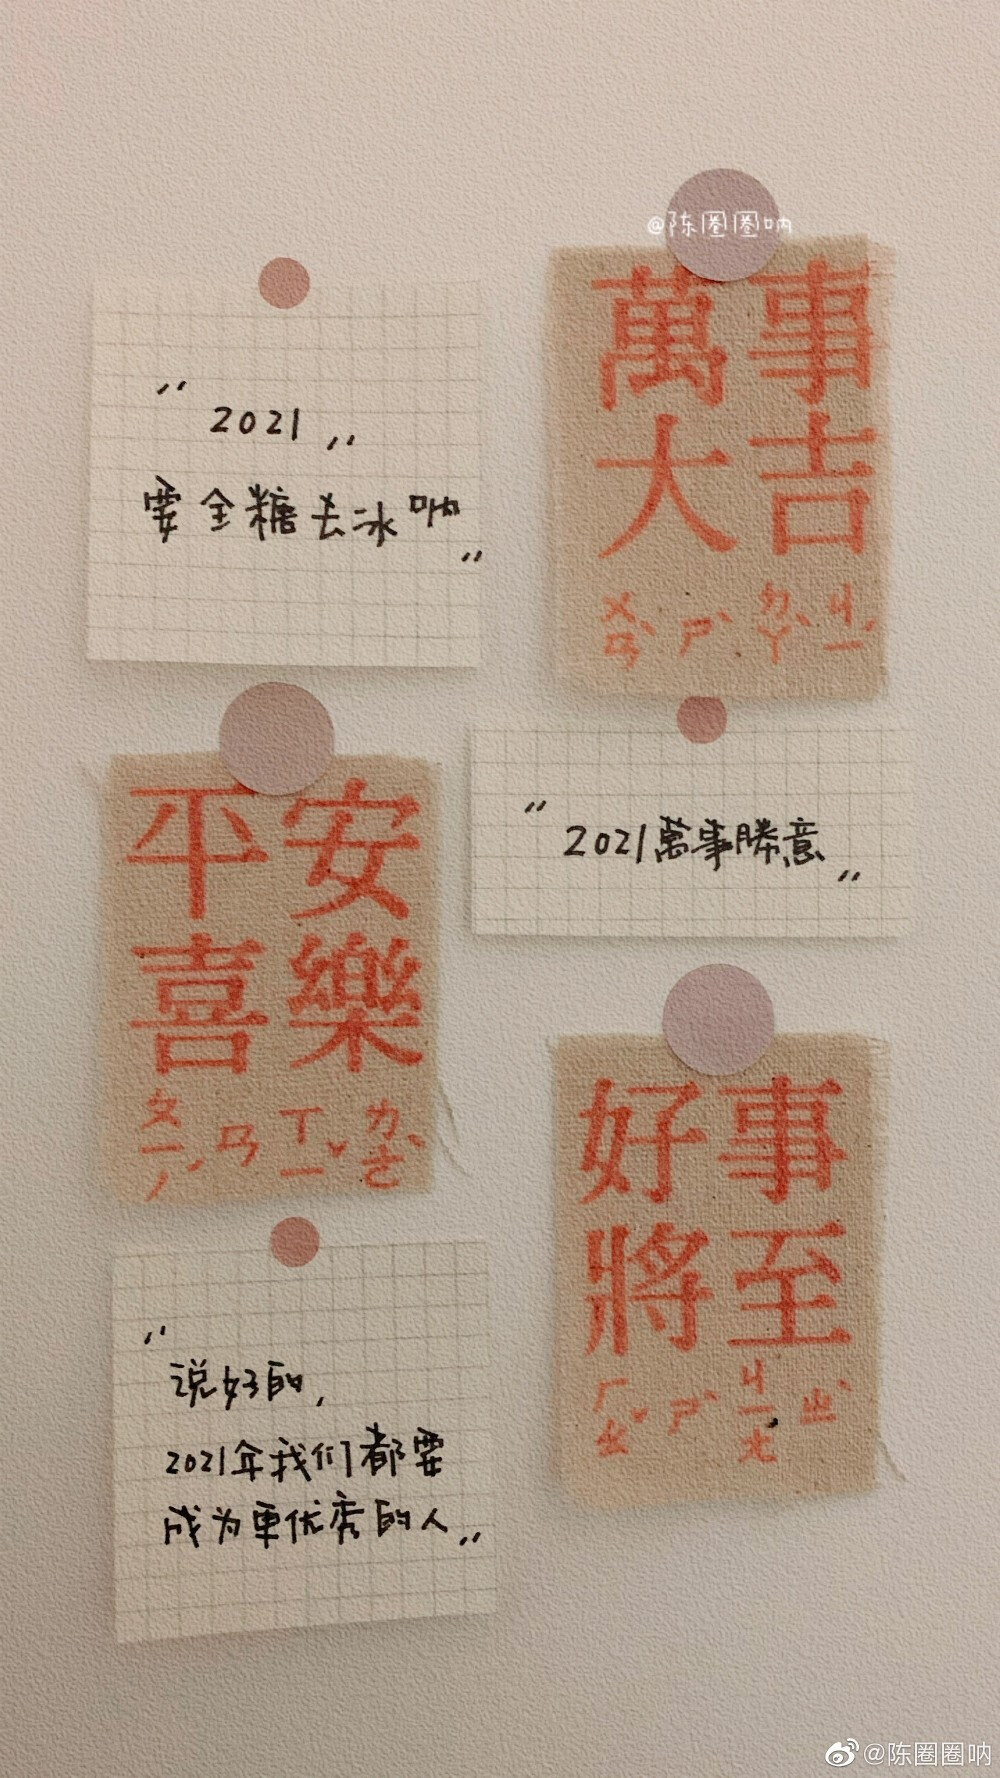 @陈圈圈呐
"2021"
要全糖去冰呐"
萬事
大吉
ㄨㄢˋ ㄕˋ ㄉㄚˋ ㄐㄧˊ
平安
喜樂
ㄆㄧㄥˊ ㄢ ㄒㄧˇ ㄌㄜˋ
"2021萬事勝意"
好事
將至
ㄏㄠˇ ㄕˋ ㄐㄧㄤ ㄓˋ
"说好的,
2021年我们都要
成为更优秀的人"
@陈圈圈呐